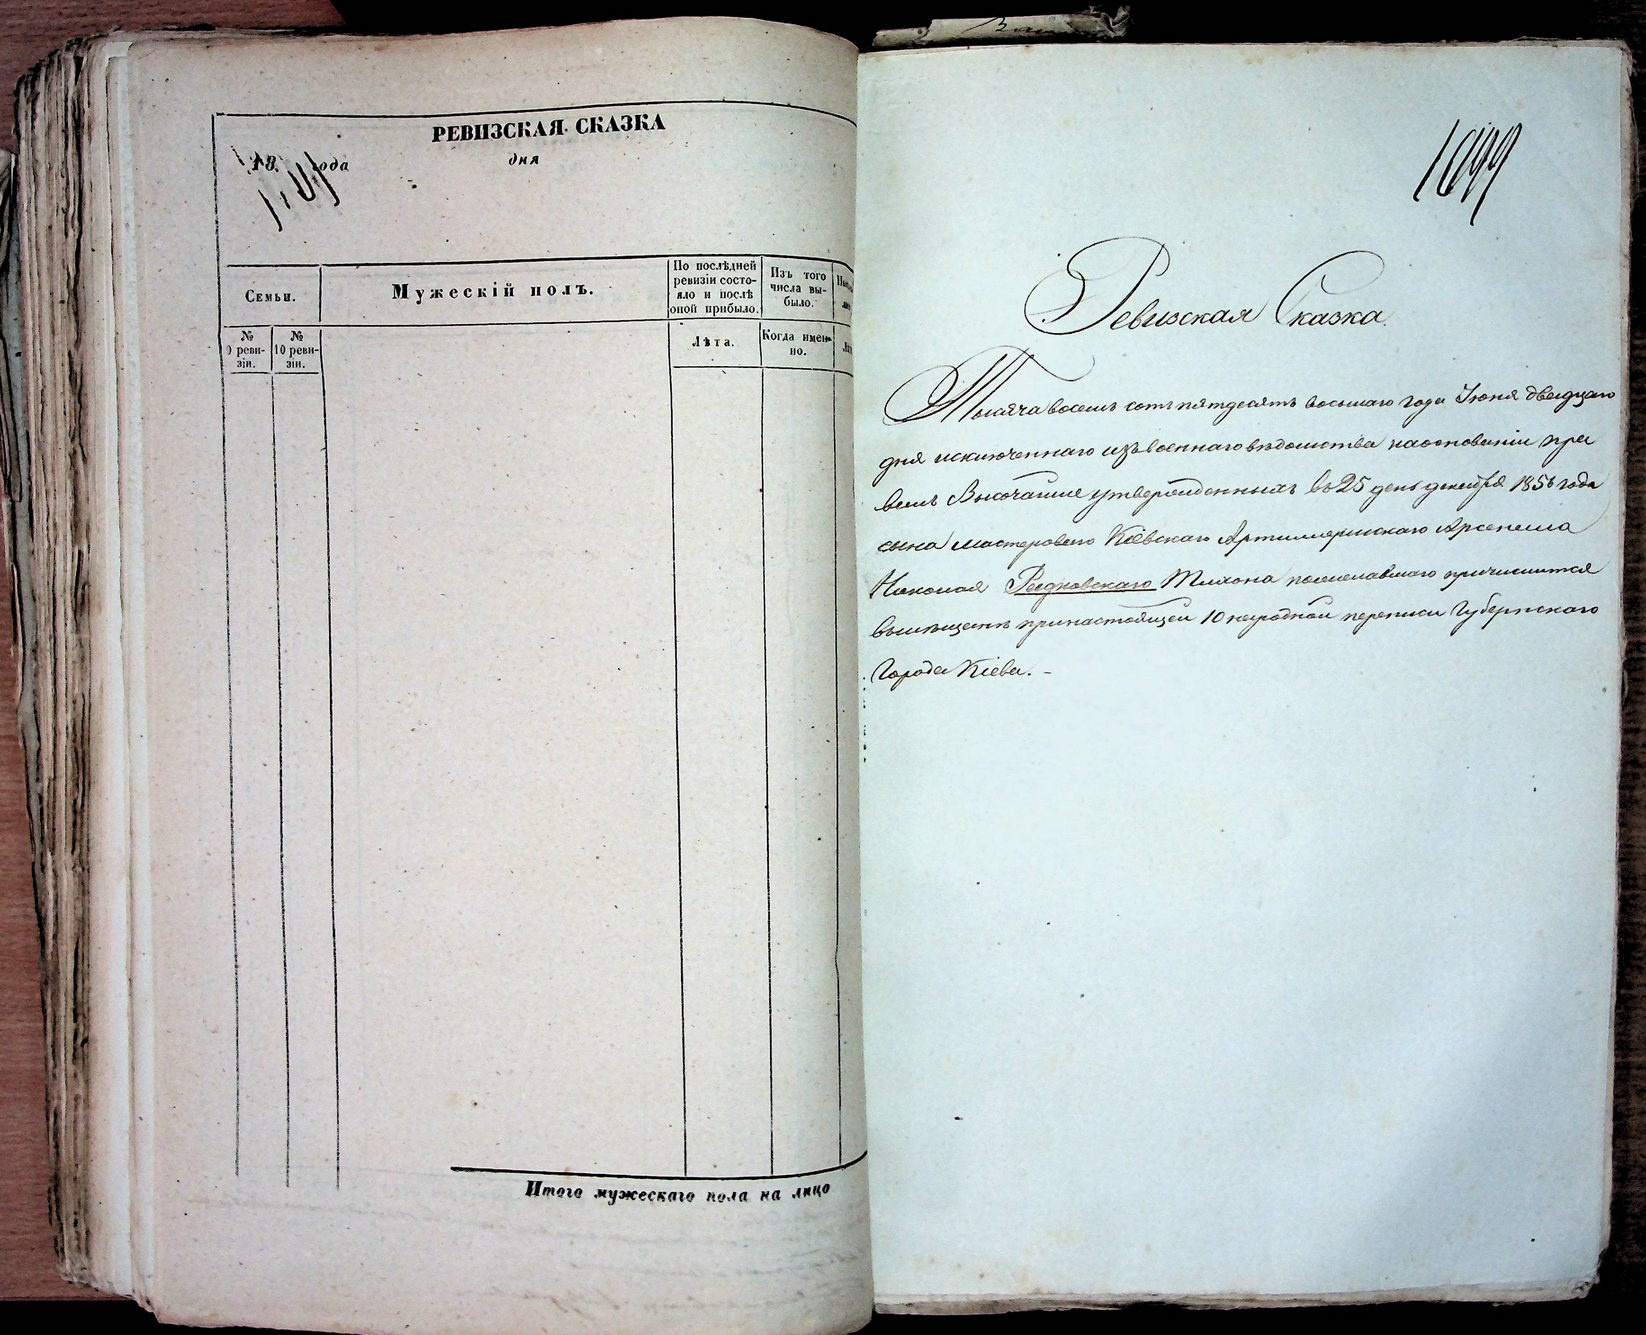 РЕВИЗСКАЯ СКАЗКА
18 года дня
Семьи.
Мужескій полъ.
По послѣдней
ревизіи состо-
яло и послѣ
оной прибыло.
Изъ того
числа вы-
было.
№
9 реви-
зіи.
№
10 реви-
зіи.
Лѣта.
Когда имен-
но.
Итого мужескаго пола на лицо
1699
Ревизская Сказка
Тысяча восемь сотъ пятдесятъ восьмаго года Іюня двадцаго
дня исключеннаго изъ военнаго вѣдомства на основаніи пра
вилъ Высочайше утвержденныхъ въ 25 день декабря 1856 года
сына мастероваго Кіевскаго Артиллерійскаго Арсенала
Николая Тихона пожелавшаго причислится
въ мѣщане при настоящей 10 народной переписи Губернскаго
Города Кіева. -